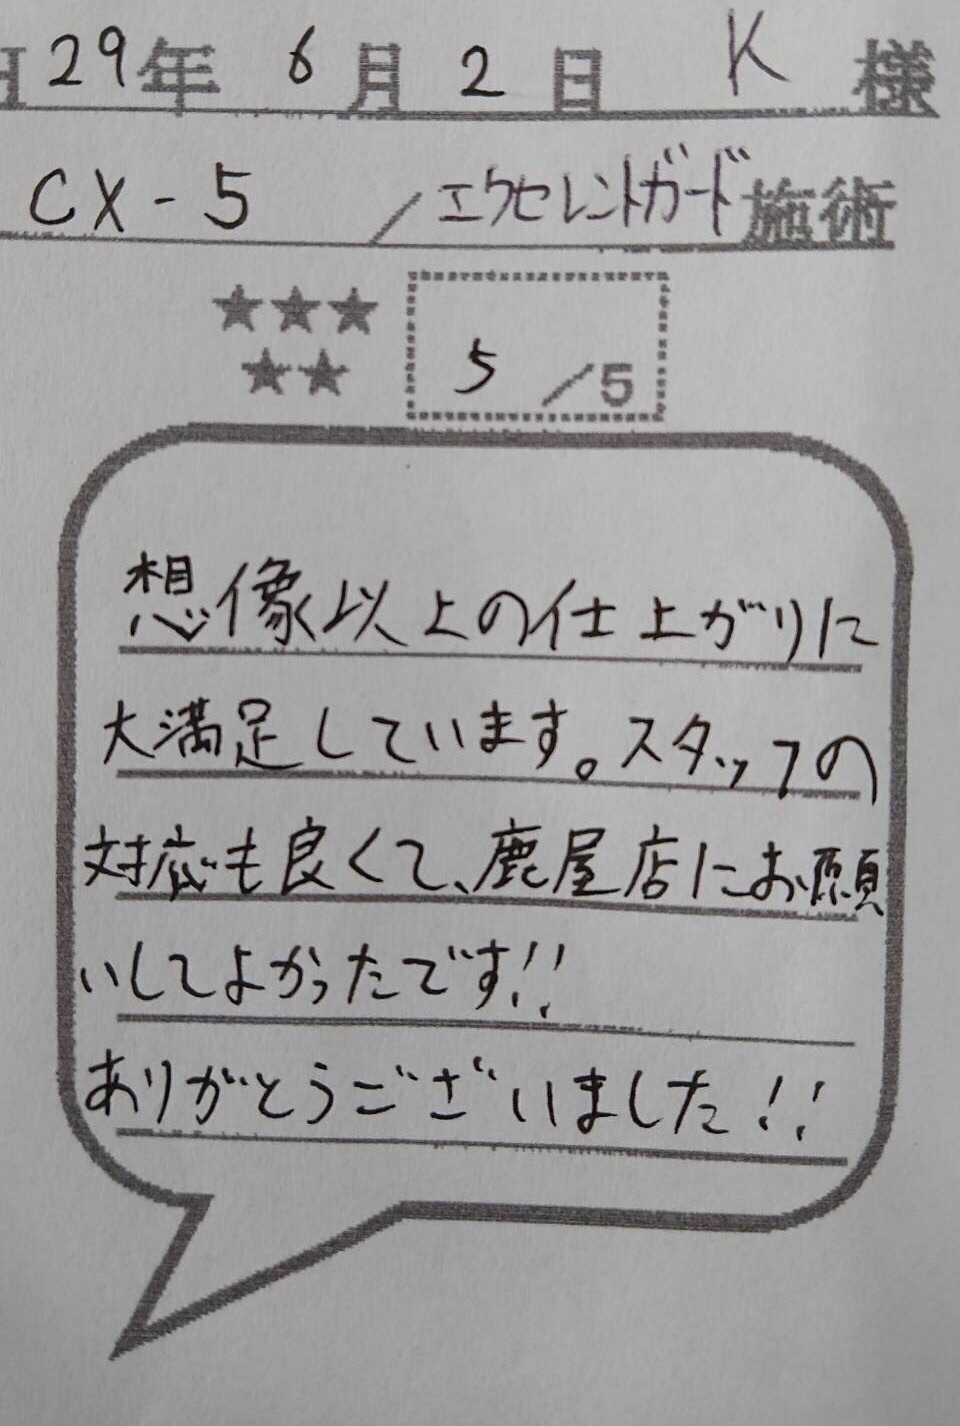 29年 6月 2日 K 様
CX-5 /エクセレントガード施術
★★★
★★ 5 /5
想像以上の仕上がりに
大満足しています。スタッフの
対応も良くて、鹿屋店にお願
いしてよかったです!!
ありがとうございました!!